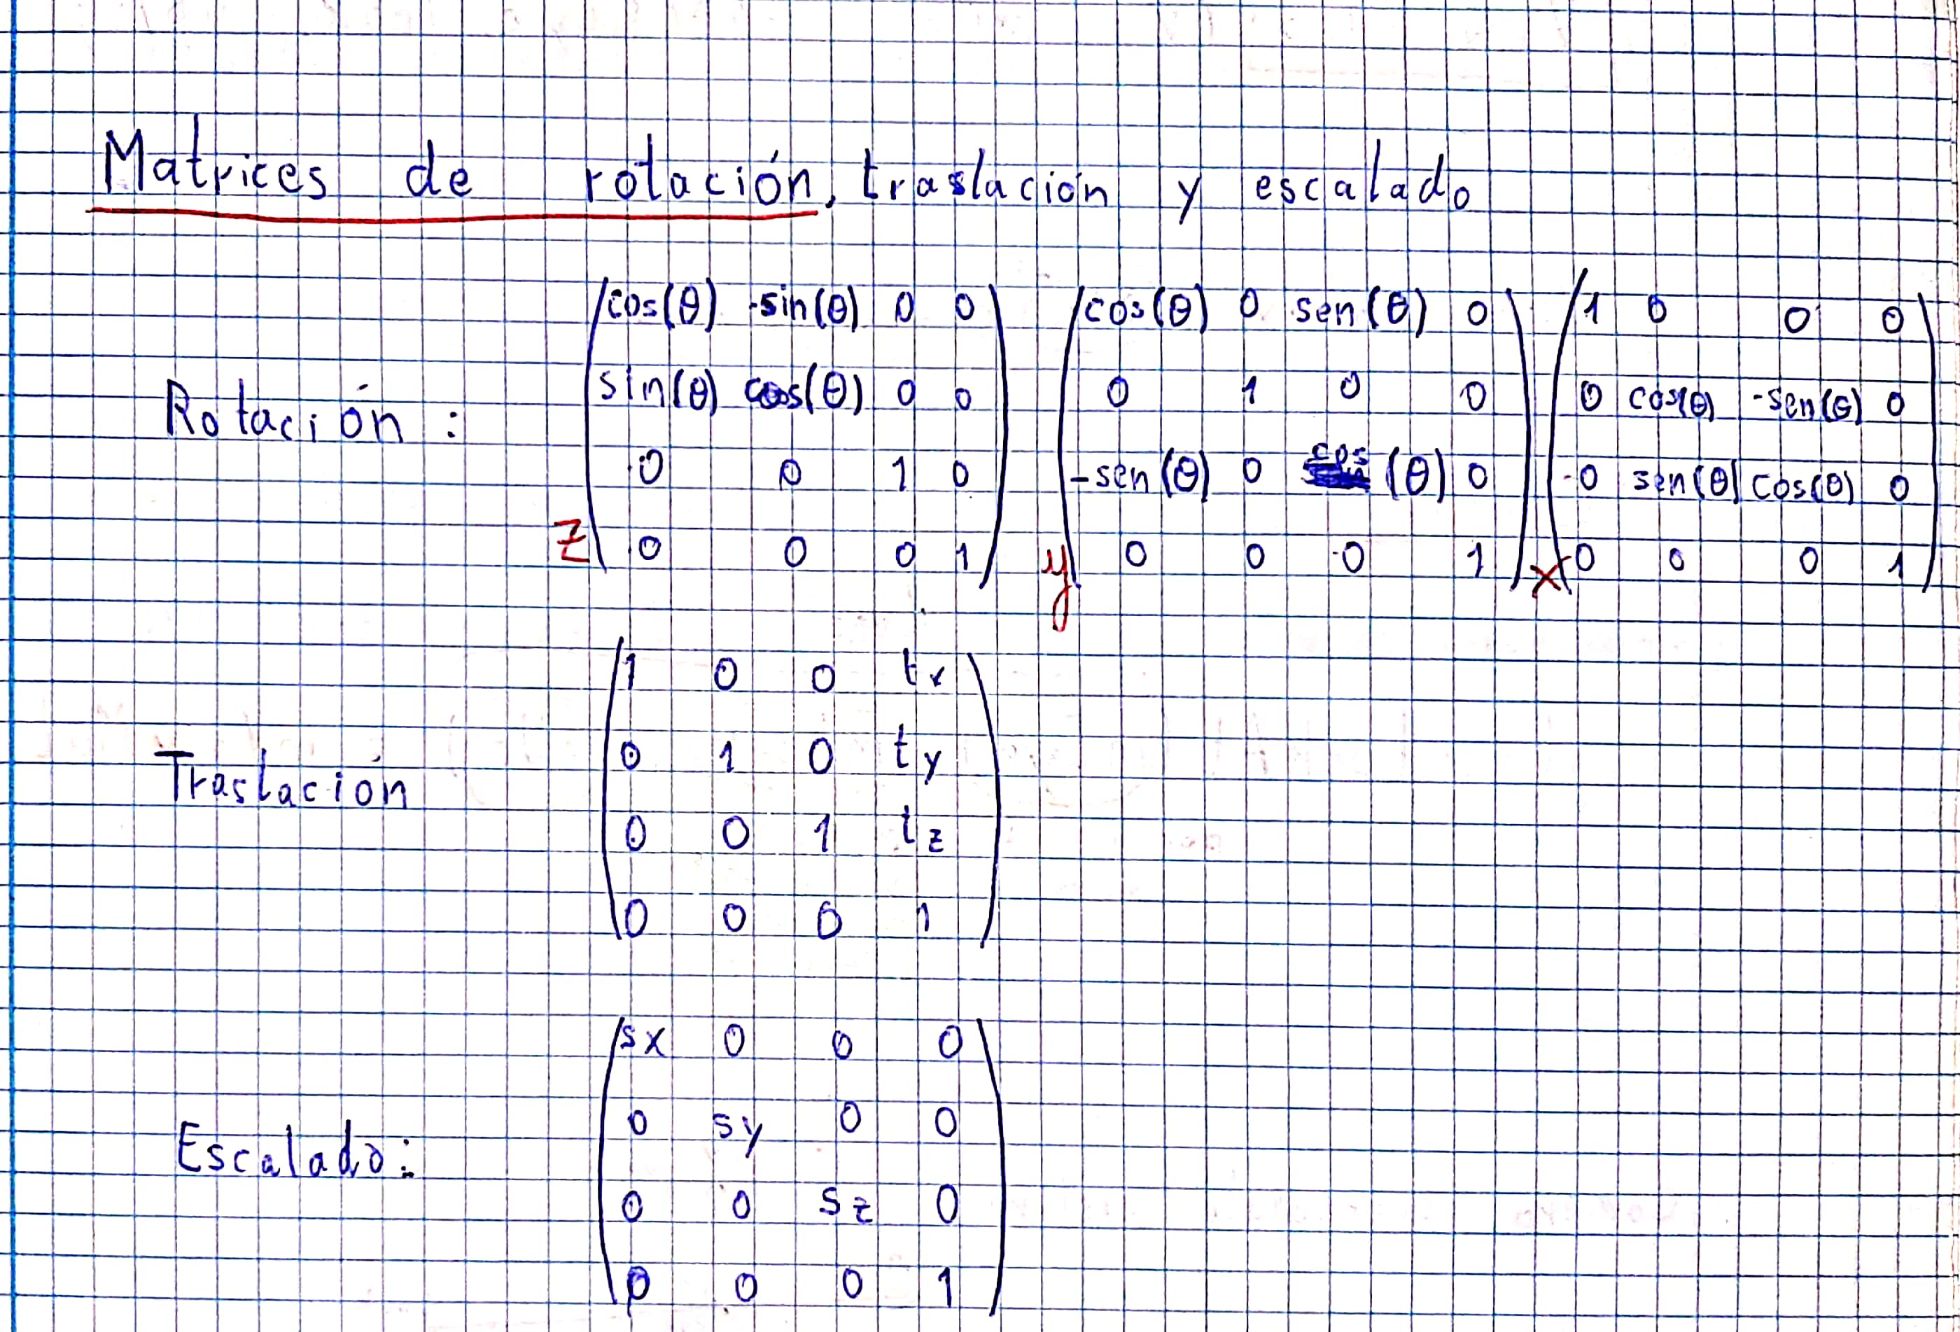 Matrices de rotación, traslación y escalado
Rotación:
cos(θ) -sin(θ) 0 0
sin(θ) cos(θ) 0 0
0 0 1 0
0 0 0 1
z
cos(θ) 0 sen(θ) 0
0 1 0 0
-sen(θ) 0 cos(θ) 0
0 0 0 1
y
1 0 0 0
0 cos(θ) -sen(θ) 0
0 sen(θ) cos(θ) 0
0 0 0 1
x
Traslación
1 0 0 tx
0 1 0 ty
0 0 1 tz
0 0 0 1
Escalado:
sx 0 0 0
0 sy 0 0
0 0 sz 0
0 0 0 1